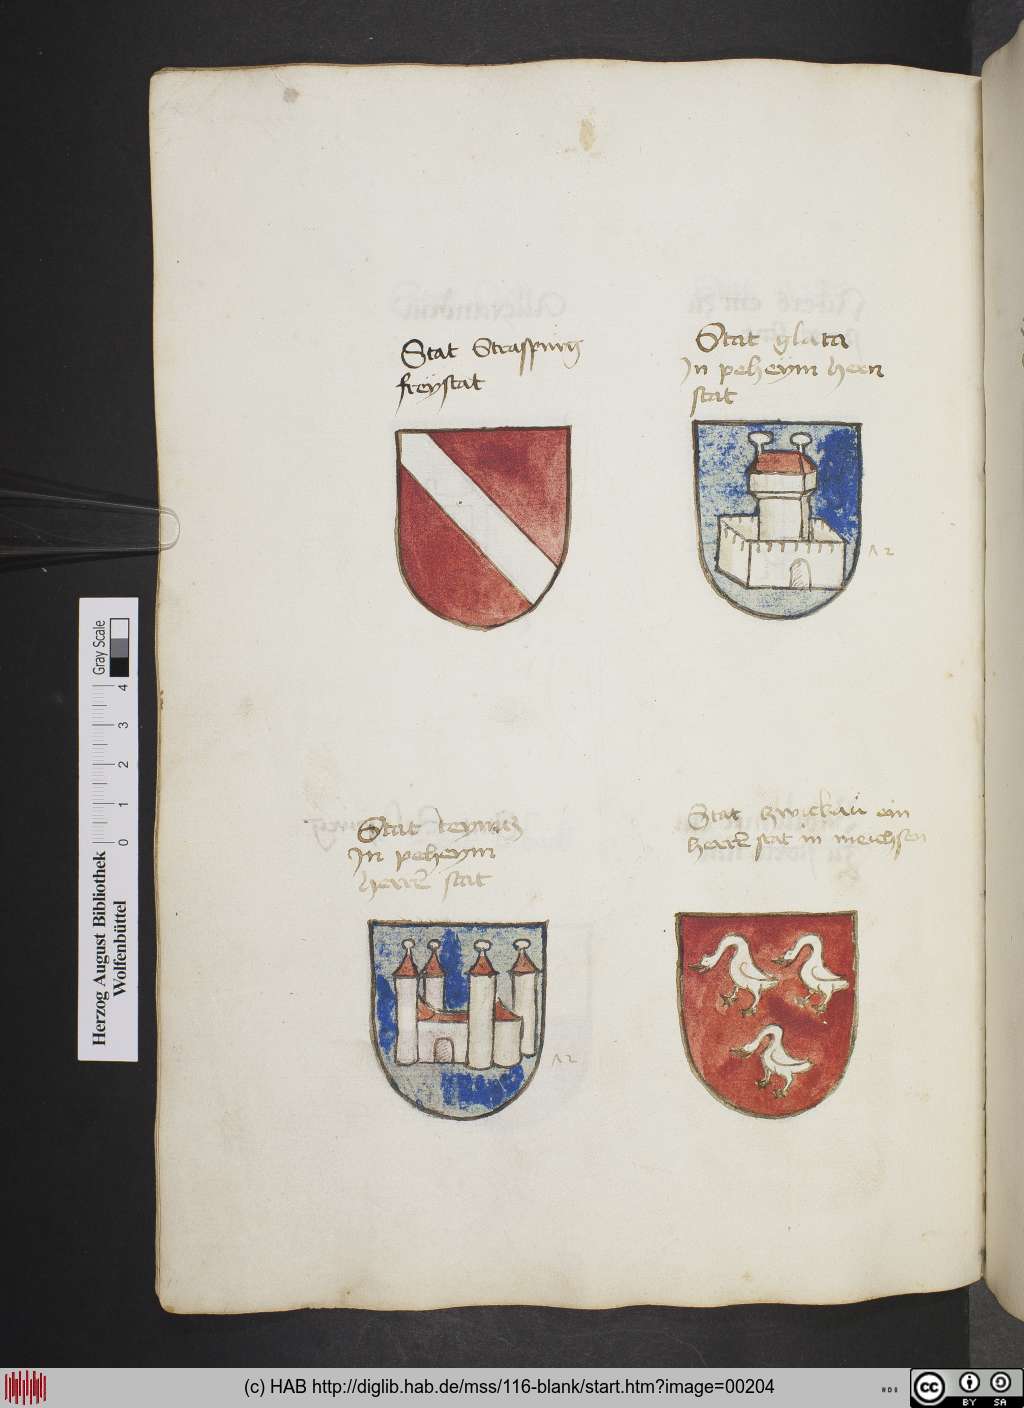 Stat Straspurg
freystat
Stat glata
Jn peheym herrn
stat
Λ 2
Stat teynitz
Jn peheym
herrn stat
Λ 2
Stat zwickau ein
herrn stat in meichssen
Herzog August Bibliothek
Wolfenbüttel
Gray Scale
0 1 2 3 4
(c) HAB http://diglib.hab.de/mss/116-blank/start.htm?image=00204
cc BY SA